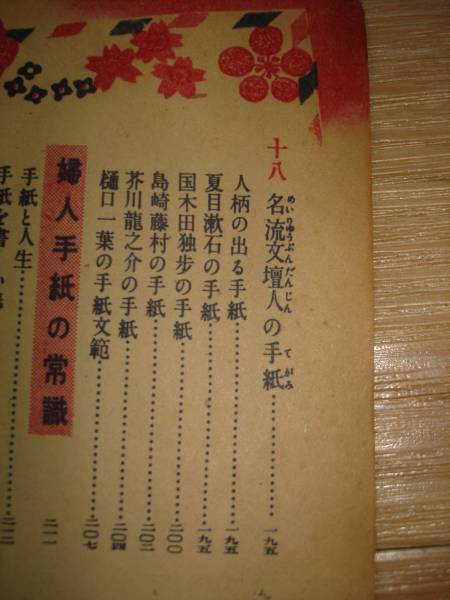 十八 名流文壇人の手紙……一九五
めいりゆうぶんだんじん てがみ
人柄の出る手紙……一九五
夏目漱石の手紙……一九五
国木田独歩の手紙……二〇〇
島崎藤村の手紙……二〇二
芥川龍之介の手紙……二〇四
樋口一葉の手紙文範……二〇七
婦人手紙の常識
手紙と人生……二一一
手紙を書